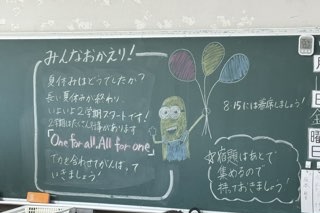 みんなおかえり！
夏休みはどうでしたか？
長い夏休みが終わり、
いよいよ2学期スタートです！
2学期はたくさん行事があります
「One for all, All for one」
力を合わせてがんばって
いきましょう！
8:15には着席しましょう！
☆宿題はあとで
集めるので
持っておきましょう！
月
日
曜